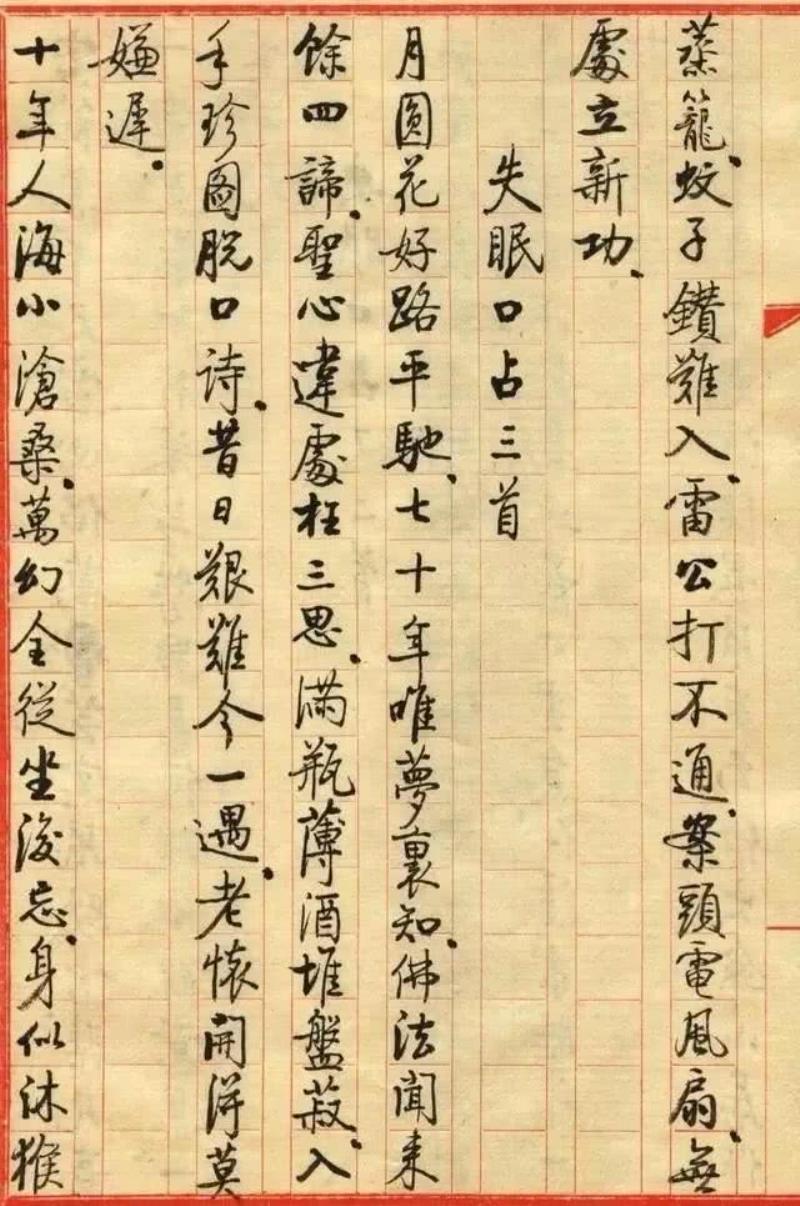 蒸籠蚊子鑽難入雷公打不通案頭電風扇無
處立新功
失眠口占三首
月圓花好路平馳七十年唯夢裏知佛法聞來
餘四諦聖心違處枉三思滿瓶薄酒堆盤菽入
手珍圖脫口詩昔日艱難今一遇老懷開得莫
嫌遲
十年人海小滄桑萬幻全從坐後忘身似沐猴